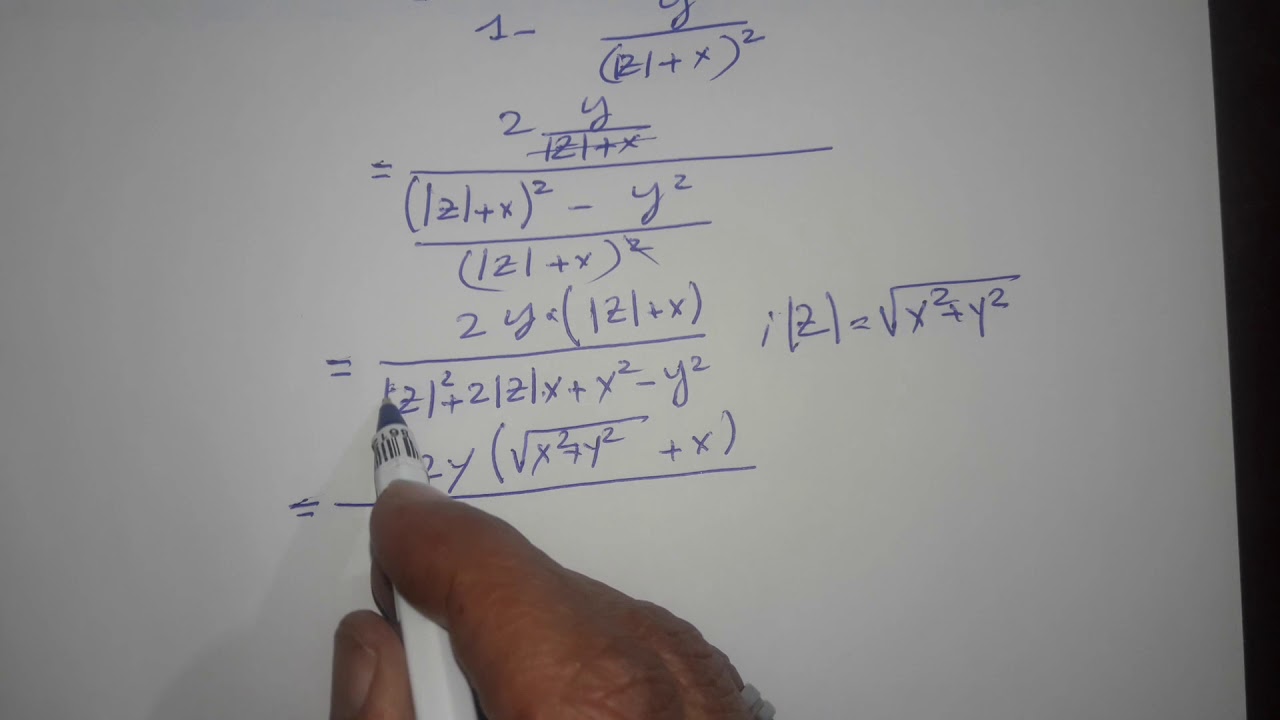 1 - y
(|z|+x)²
2 y
|z|+x
=
(|z|+x)² - y²
(|z|+x)²
2 y·(|z|+x) ; |z| = √x²+y²
=
|z|²+2|z|·x+x²-y²
2y(√x²+y² +x)
=